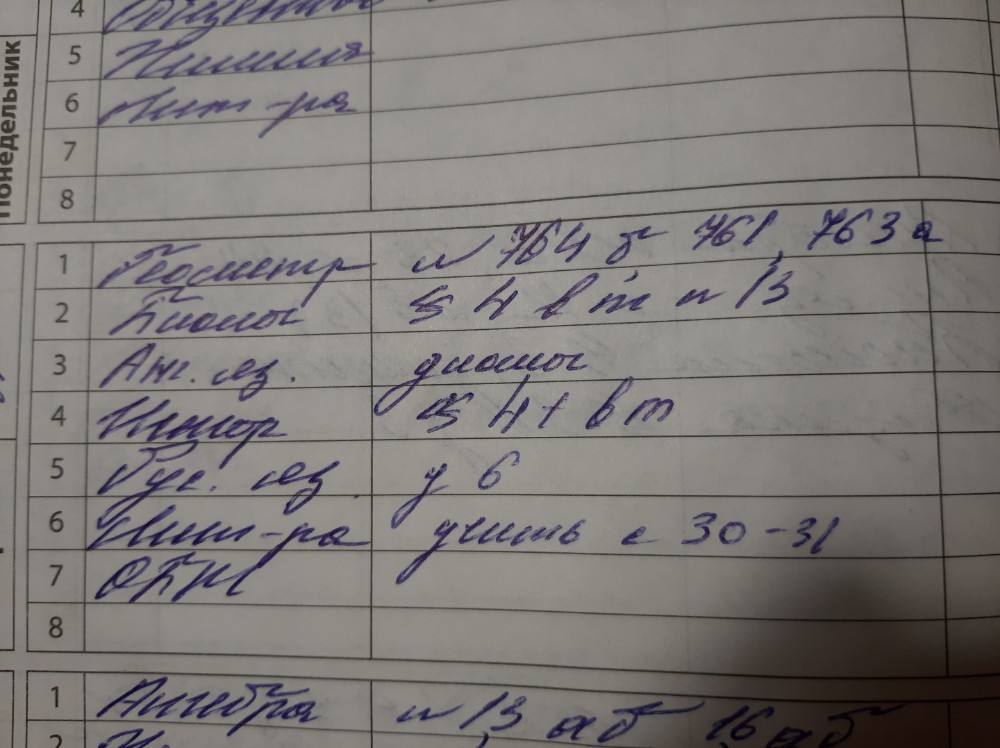 Понедельник
4
5 Химия
6 Лит-ра
7
8
1 Геометр № 764 б 761, 763 а
2 Биолог § 4 в т № 13
3 Анг. яз. диалог
4 Истор § 4 + в т
5 Рус. яз. у 6
6 Лит-ра учить с 30-31
7 ОБЖ
8
1 Алгебра № 13 а б 16 а б
2